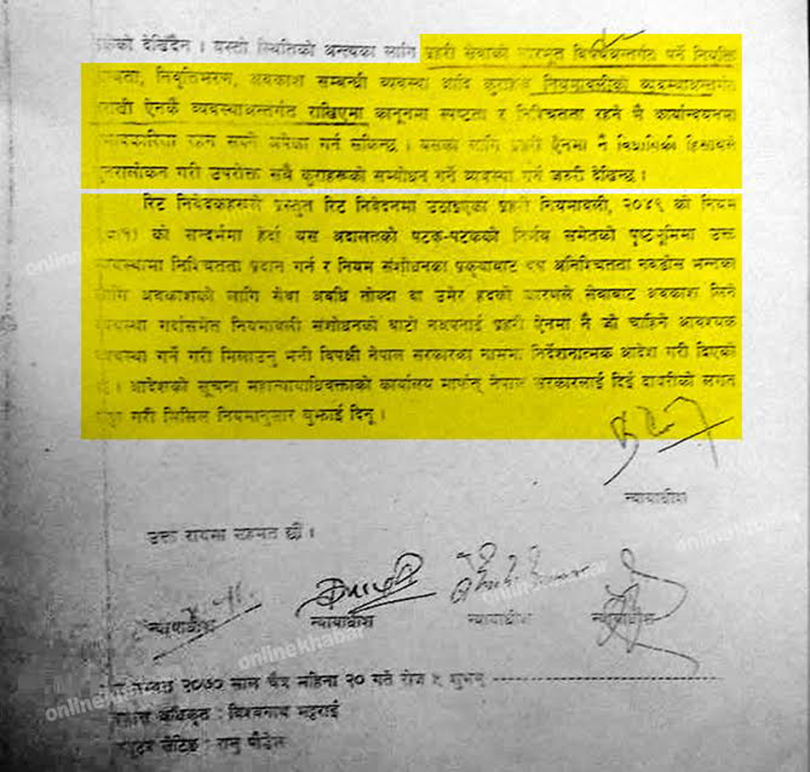 देखिँदैन । यस्तो स्थितिको अन्त्यका लागि प्रहरी सेवाको सारभूत विषयअन्तर्गत पर्ने नियुक्ति
योग्यता, निवृत्तिभरण, अवकाश सम्बन्धी व्यवस्था आदि कुराहरू नियमावलीको व्यवस्थाअन्तर्गत
नराखी ऐनकै व्यवस्थाअन्तर्गत राखिएमा कानूनमा स्पष्टता र निश्चितता रहने भै कार्यान्वयनमा
रहन सक्ने अपेक्षा गर्न सकिन्छ । यसका लागि प्रहरी ऐनमा नै विधायिकी हिसाबले
पुनरावलोकन गरी उपरोक्त सबै कुराहरूको सम्बोधन गर्ने व्यवस्था गर्न जरुरी देखिन्छ ।
रिट निवेदकहरूले प्रस्तुत रिट निवेदनमा उठाइएका प्रहरी नियमावली, २०४९ को नियम
को सन्दर्भमा हेर्दा यस अदालतको पटक-पटकको निर्णय समेतको पृष्ठभूमिमा उक्त
व्यवस्थामा निश्चितता प्रदान गर्न र नियम संशोधनका प्रकृयाबाट थप अनिश्चितता नबढोस भन्नका
लागि अवकाशको लागि सेवा अवधि तोक्दा वा उमेर हदको कारणले सेवाबाट अवकाश लिने
व्यवस्था गर्दासमेत नियमावली संशोधनको बाटो नअपनाई प्रहरी ऐनमा नै जो चाहिने आवश्यक
व्यवस्था गर्ने गरी मिलाउनु भनी विपक्षी नेपाल सरकारका नाममा निर्देशनात्मक आदेश गरी दिएको
छ । आदेशको सूचना महान्यायाधिवक्ताको कार्यालय मार्फत् नेपाल सरकारलाई दिई दायरीको लगत
कट्टा गरी मिसिल नियमानुसार बुझाई दिनू ।
न्यायाधीश
उक्त रायमा सहमत छौं ।
न्यायाधीश न्यायाधीश न्यायाधीश न्यायाधीश
सम्वत २०७० साल चैत्र महिना २० गते रोज ५ शुभम्
अधिकृत : विश्वनाथ भट्टराई
सेटिङ : रानु पौडेल
onlinekhabar